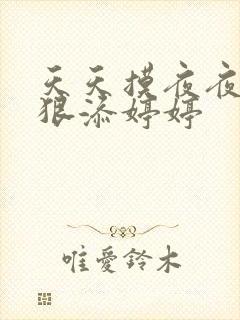 天天摸夜夜
狠添婷婷
唯愛鈴木